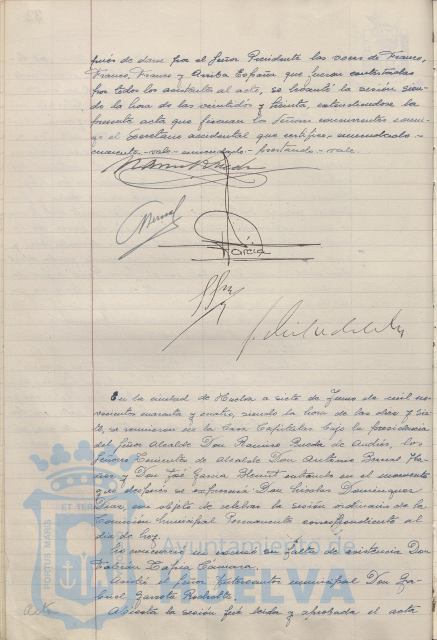 pués de darse por el Señor Presidente las voces de Franco,
Franco, Franco y Arriba España que fueron contestadas
por todos los asistentes al acto, se levantó la sesión sien-
do la hora de las veintidós y treinta, extendiéndose la
presente acta que firman los Señores concurrentes conmi-
go el Secretario accidental que certifico.- enmendado-
cuarenta -vale- enmendado- prestando -vale.
Bernal
García
En la ciudad de Huelva a siete de Junio de mil no-
vecientos cuarenta y cuatro, siendo la hora de las diez y sie-
te, se reunieron en la Casa Capitular bajo la presidencia
del Señor Alcalde Don Ramiro Rueda de Andrés, los
Señores Tenientes de Alcalde Don Antonio Bernal
y Don José García entrando en el momento
que después se expresará Don Nicolás Domínguez
con objeto de celebrar la sesión ordinaria de la
Comisión Municipal Permanente correspondiente al
día de hoy.
su falta de asistencia Don
Fabián Tapia Cámara.
el Señor Interventor municipal Don Ga-
briel Garrote
Acta Abierta la sesión fué leída y aprobada el acta
PORTUS MARIS
ET TERRAE
Ayuntamiento de
HUELVA